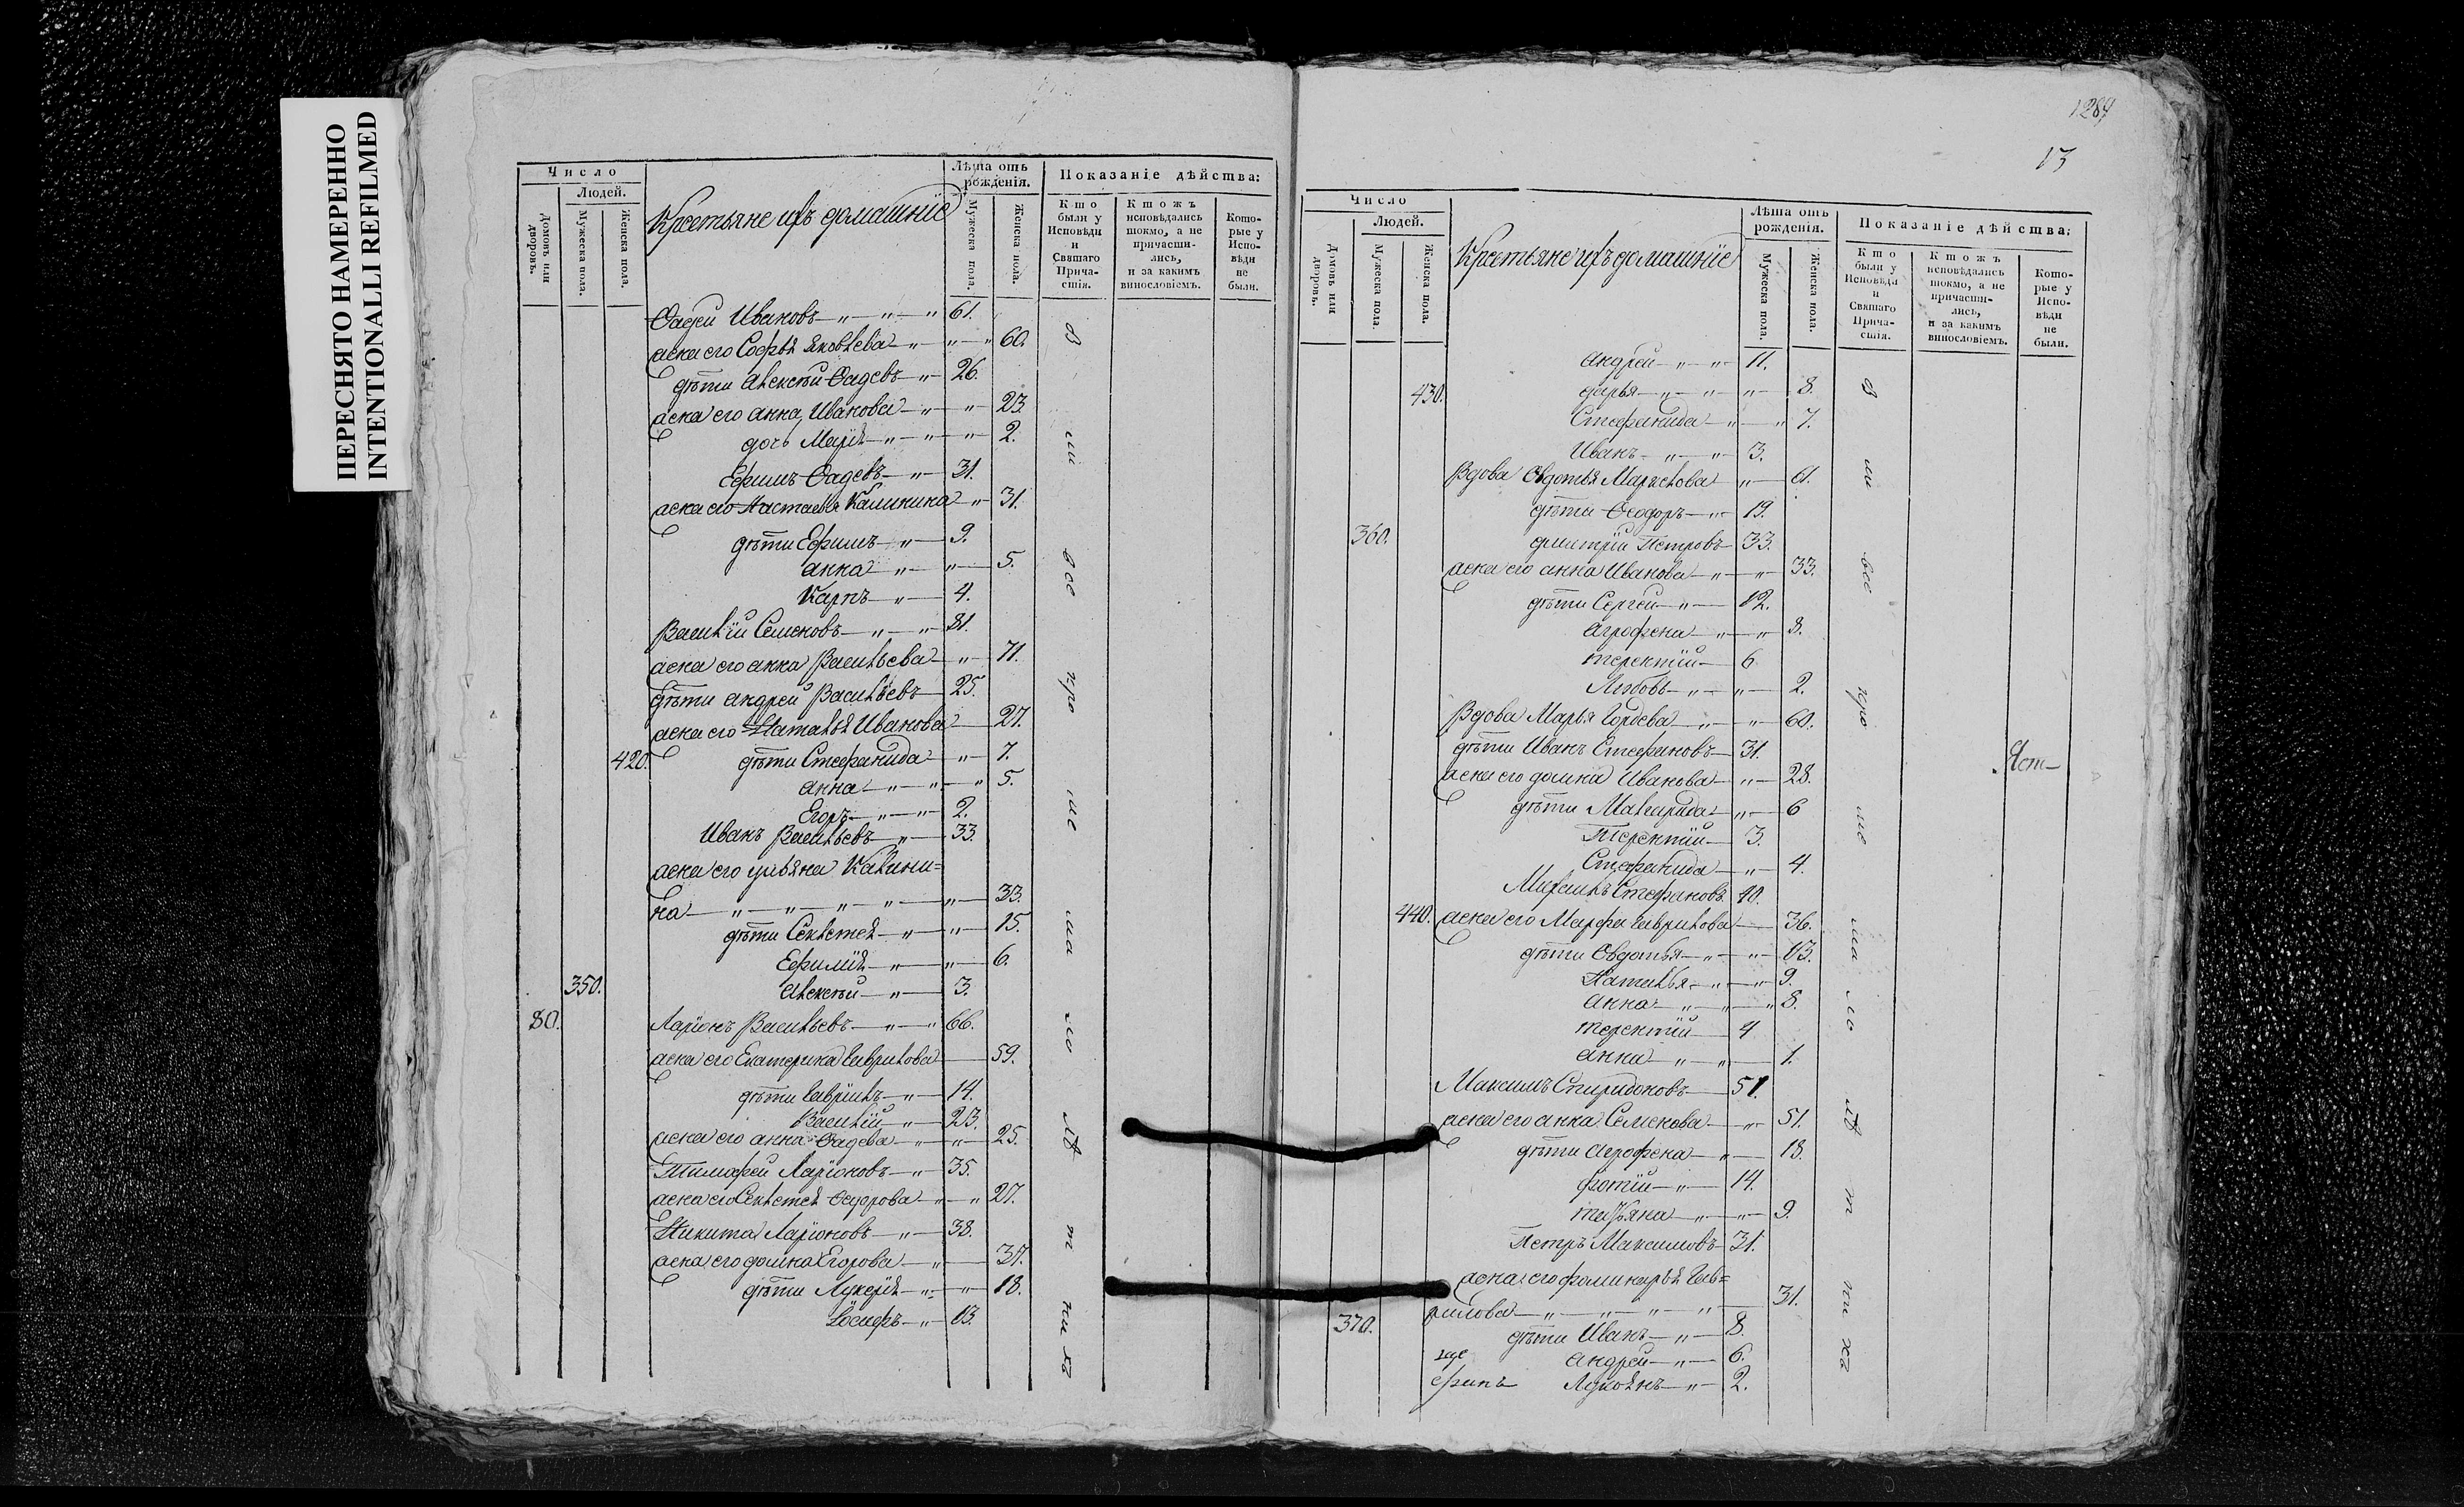 ПЕРЕСНЯТО НАМЕРЕННО
INTENTIONALLI REFILMED
Число
Людей.
Домовъ или дворовъ.
Мужеска пола.
Женска пола.
Крестьяне ихъ домашнїе
Лѣта отъ рожденія.
Мужеска пола.
Женска пола.
Показаніе дѣйства:
Кто были у Исповѣди и Святаго Причастія.
Ктожъ исповѣдались токмо, а не причастились, и за какимъ винословіемъ.
Которые у Исповѣди не были.
Фадей Ивановъ 61.
жена его Софья Яковлева 60.
дѣти Алексѣй Фадевъ 26.
жена его анна Иванова 23.
дочь Марїя 2.
Ефимъ Фадевъ 31.
жена его Настасья Калинина 31.
дѣти Ефимъ 9.
анна 5.
Карпъ 4.
Василїй Семеновъ 81.
жена его анна Васильева 71.
дѣти андрей Васильевъ 25.
жена его Наталья Иванова 27.
420. дѣти Стефанида 7.
анна 5.
Егоръ 2.
Иванъ Васильевъ 33.
жена его ульяна Калини=
на 33.
дѣти 15.
Ефимїя 6.
350. алексѣй 3.
80. Ларїонъ Васильевъ 66.
жена его Екатерина Гаврилова 59.
дѣти Гаврїилъ 14.
Василїй 23.
жена его анна Фадева 25.
Тимофей Ларїоновъ 35.
жена его 27.
Никита Ларїоновъ 38.
жена его домна Егорова 37.
дѣти Лукерїя 18.
Їосифъ 13.
1289
13
Число
Людей.
Домовъ или дворовъ.
Мужеска пола.
Женска пола.
Крестьяне ихъ домашнїе
Лѣта отъ рожденія.
Мужеска пола.
Женска пола.
Показаніе дѣйства:
Кто были у Исповѣди и Святаго Причастія.
Ктожъ исповѣдались токмо, а не причастились, и за какимъ винословіемъ.
Которые у Исповѣди не были.
андрей 11.
430. дарья 8.
Стефанида 7.
Иванъ 3.
Вдова Овдотья 61.
дѣти Феодоръ 19.
360. дмитрїй Петровъ 33.
жена его анна Иванова 33.
дѣти Сергей 12.
агрофена 8.
терентїй 6.
Любовь 2.
Вдова Марья Гордева 60.
дѣти Иванъ Стефановъ 31.
жена его домна Иванова 28.
дѣти 6
Терентїй 3.
Стефанида 4.
Михаилъ Стефановъ 40.
440. жена его Марфа Гаврилова 36.
дѣти Овдотья 13.
Наталья 9.
анна 8.
терентїй 4
анна 1.
Максимъ Спиридоновъ 51.
жена его анна Семенова 51.
дѣти агрофена 18.
фотїй 14.
татьяна 9.
Петръ Максимовъ 31.
жена его Гав=
рилова 31.
370. дѣти Иванъ 8.
андрей 6.
Лукоянъ 2.